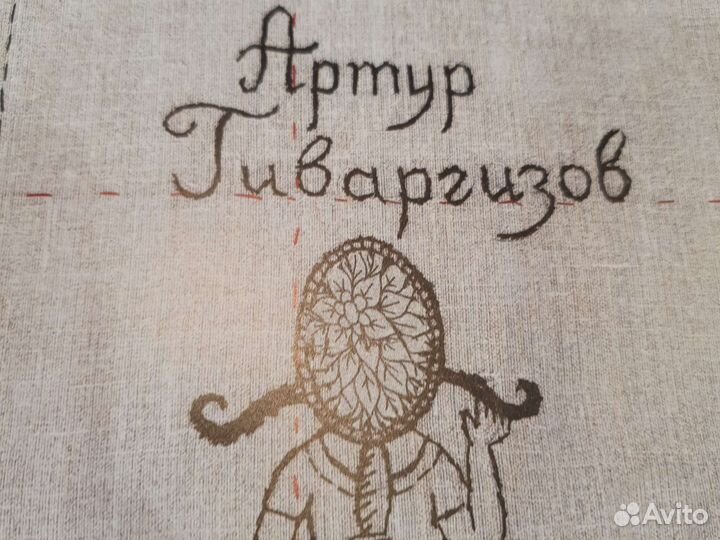 Артур
Гиваргизов
Avito